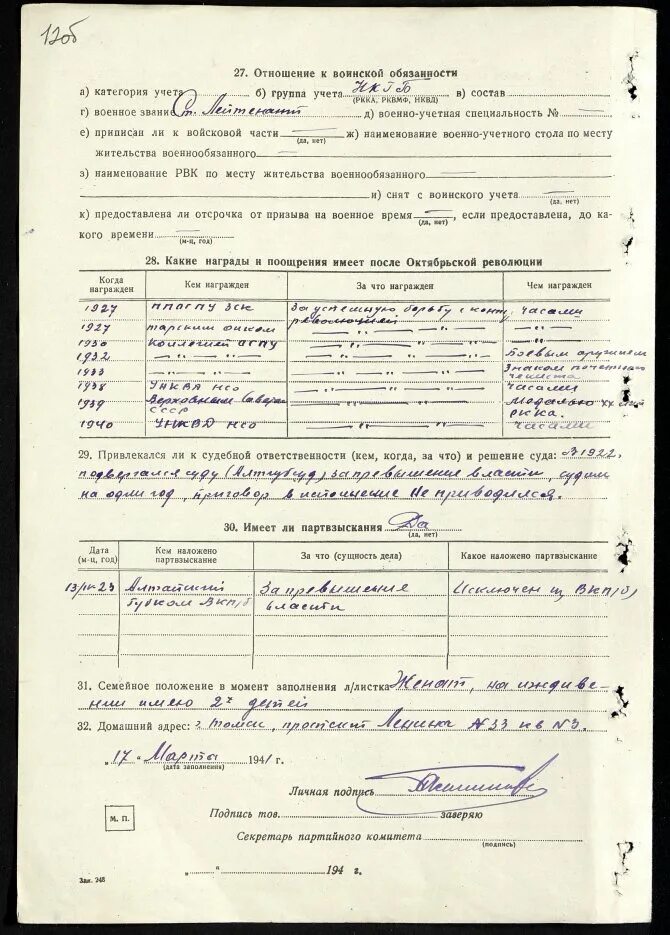 12об
27. Отношение к воинской обязанности
а) категория учета — б) группа учета НКГБ в) состав —
(РККА, РКВМФ, НКВД)
г) военное звание Ст. Лейтенант д) военно-учетная специальность № —
е) приписан ли к войсковой части — ж) наименование военно-учетного стола по месту
(да, нет)
жительства военнообязанного —
з) наименование РВК по месту жительства военнообязанного —
и) снят с воинского учета —
(да, нет)
к) предоставлена ли отсрочка от призыва на военное время —, если предоставлена, до ка-
(да, нет)
кого времени —
(м-ц, год)
28. Какие награды и поощрения имеет после Октябрьской революции
Когда награжден Кем награжден За что награжден Чем награжден
1927 ППОГПУ ЗСК За успешную борьбу с контр часами
революцией
1927 тарским оиком — " — " —
1930 Коллегией ОГПУ — " — " —
1932 — " — " — — " — " — Боевым оружием
1933 — " — " — — " — " — Знаком почетного
чекиста
1938 УНКВД НСО — " — " — часами
1939 Верховным Совет — " — " — медалью XX лет
СССР РККА.
1940 УНКВД НСО — " — " — часами
29. Привлекался ли к судебной ответственности (кем, когда, за что) и решение суда: В 1922.
подвергался суду (Алтгубсуд) за превышение власти, судим
на один год, приговор в исполнение не приводился.
30. Имеет ли партвзыскания Да
(да, нет)
Дата (м-ц, год) Кем наложено партвзыскание За что (сущность дела) Какое наложено партвзыскание
23 Алтайский За превышение Исключен из ВКП/б/
губком ВКП/б власти
31. Семейное положение в момент заполнения л/листка Женат, на иждиве-
нии имею 2х детей
32. Домашний адрес: г. Томск, проспект Ленина №33 кв №3.
„17" Марта 1941 г.
(дата заполнения)
Личная подпись
Подпись тов. заверяю
М. П.
Секретарь партийного комитета
(подпись)
„ " 194 г.
Зак. 246